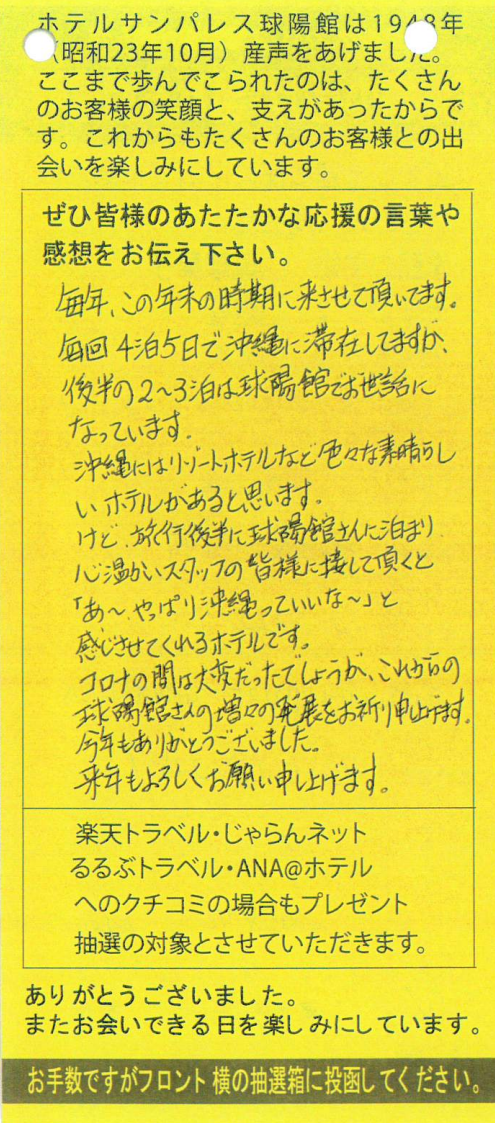 ホテルサンパレス球陽館は1948年
（昭和23年10月）産声をあげました。
ここまで歩んでこられたのは、たくさん
のお客様の笑顔と、支えがあったからで
す。これからもたくさんのお客様との出
会いを楽しみにしています。
ぜひ皆様のあたたかな応援の言葉や
感想をお伝え下さい。
毎年、この年末の時期に来させて頂いてます。
毎回4泊5日で沖縄に滞在してますが、
後半の2〜3泊は球陽館でお世話に
なっています。
沖縄にはリゾートホテルなど色々な素晴らし
いホテルがあると思います。
けど、旅行後半に球陽館さんに泊まり
心温かいスタッフの皆様に接して頂くと
「あ〜、やっぱり沖縄っていいな〜」と
感じさせてくれるホテルです。
コロナの間は大変だったでしょうが、これからの
球陽館さんの増々の発展をお祈り申し上げます。
今年もありがとうございました。
来年もよろしくお願い申し上げます。
楽天トラベル・じゃらんネット
るるぶトラベル・ANA@ホテル
へのクチコミの場合もプレゼント
抽選の対象とさせていただきます。
ありがとうございました。
またお会いできる日を楽しみにしています。
お手数ですがフロント横の抽選箱に投函してください。